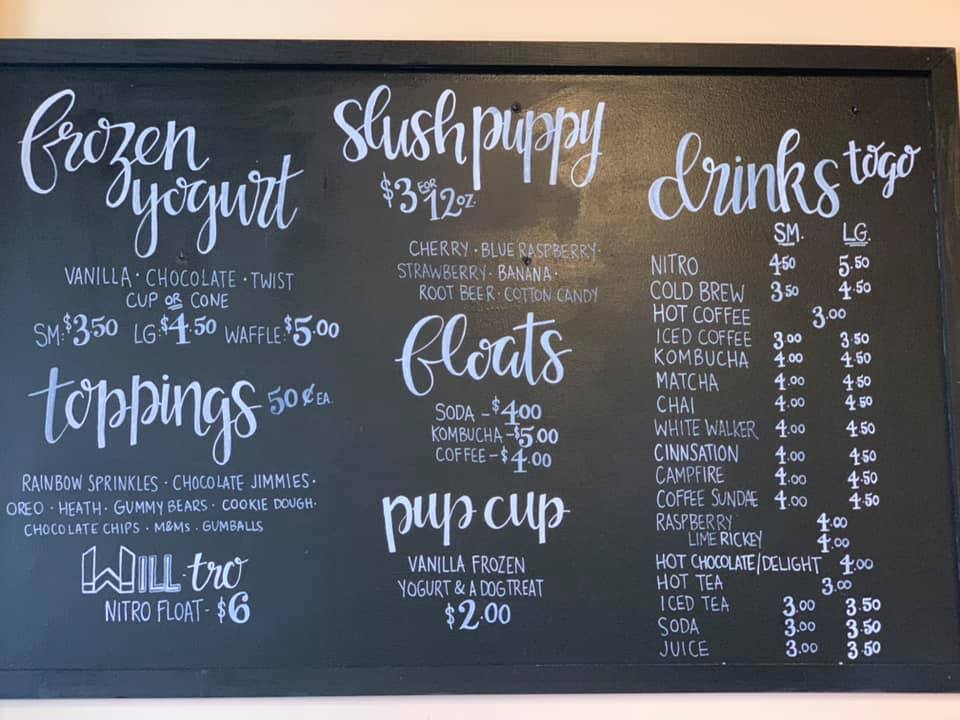 frozen
yogurt
VANILLA · CHOCOLATE · TWIST
CUP OR CONE
SM:$3.50 LG:$4.50 WAFFLE:$5.00
toppings 50¢ EA.
RAINBOW SPRINKLES · CHOCOLATE JIMMIES ·
OREO · HEATH · GUMMY BEARS · COOKIE DOUGH ·
CHOCOLATE CHIPS · M&Ms · GUMBALLS
WILL-tro
NITRO FLOAT - $6
slush puppy
$3 FOR 12OZ.
CHERRY · BLUE RASPBERRY ·
STRAWBERRY · BANANA ·
ROOT BEER · COTTON CANDY
floats
SODA - $4.00
KOMBUCHA - $5.00
COFFEE - $4.00
pup cup
VANILLA FROZEN
YOGURT & A DOG TREAT
$2.00
drinks to go
SM. LG.
NITRO 4.50 5.50
COLD BREW 3.50 4.50
HOT COFFEE 3.00
ICED COFFEE 3.00 3.50
KOMBUCHA 4.00 4.50
MATCHA 4.00 4.50
CHAI 4.00 4.50
WHITE WALKER 4.00 4.50
CINNSATION 4.00 4.50
CAMPFIRE 4.00 4.50
COFFEE SUNDAE 4.00 4.50
RASPBERRY 4.00
LIME RICKEY 4.00
HOT CHOCOLATE/DELIGHT 4.00
HOT TEA 3.00
ICED TEA 3.00 3.50
SODA 3.00 3.50
JUICE 3.00 3.50